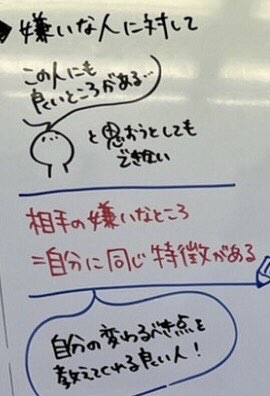 嫌いな人に対して
この人にも
良いところがある…
と思おうとしても
できない
相手の嫌いなところ
=自分に同じ特徴がある
自分の変わるべき点を
教えてくれる良い人!